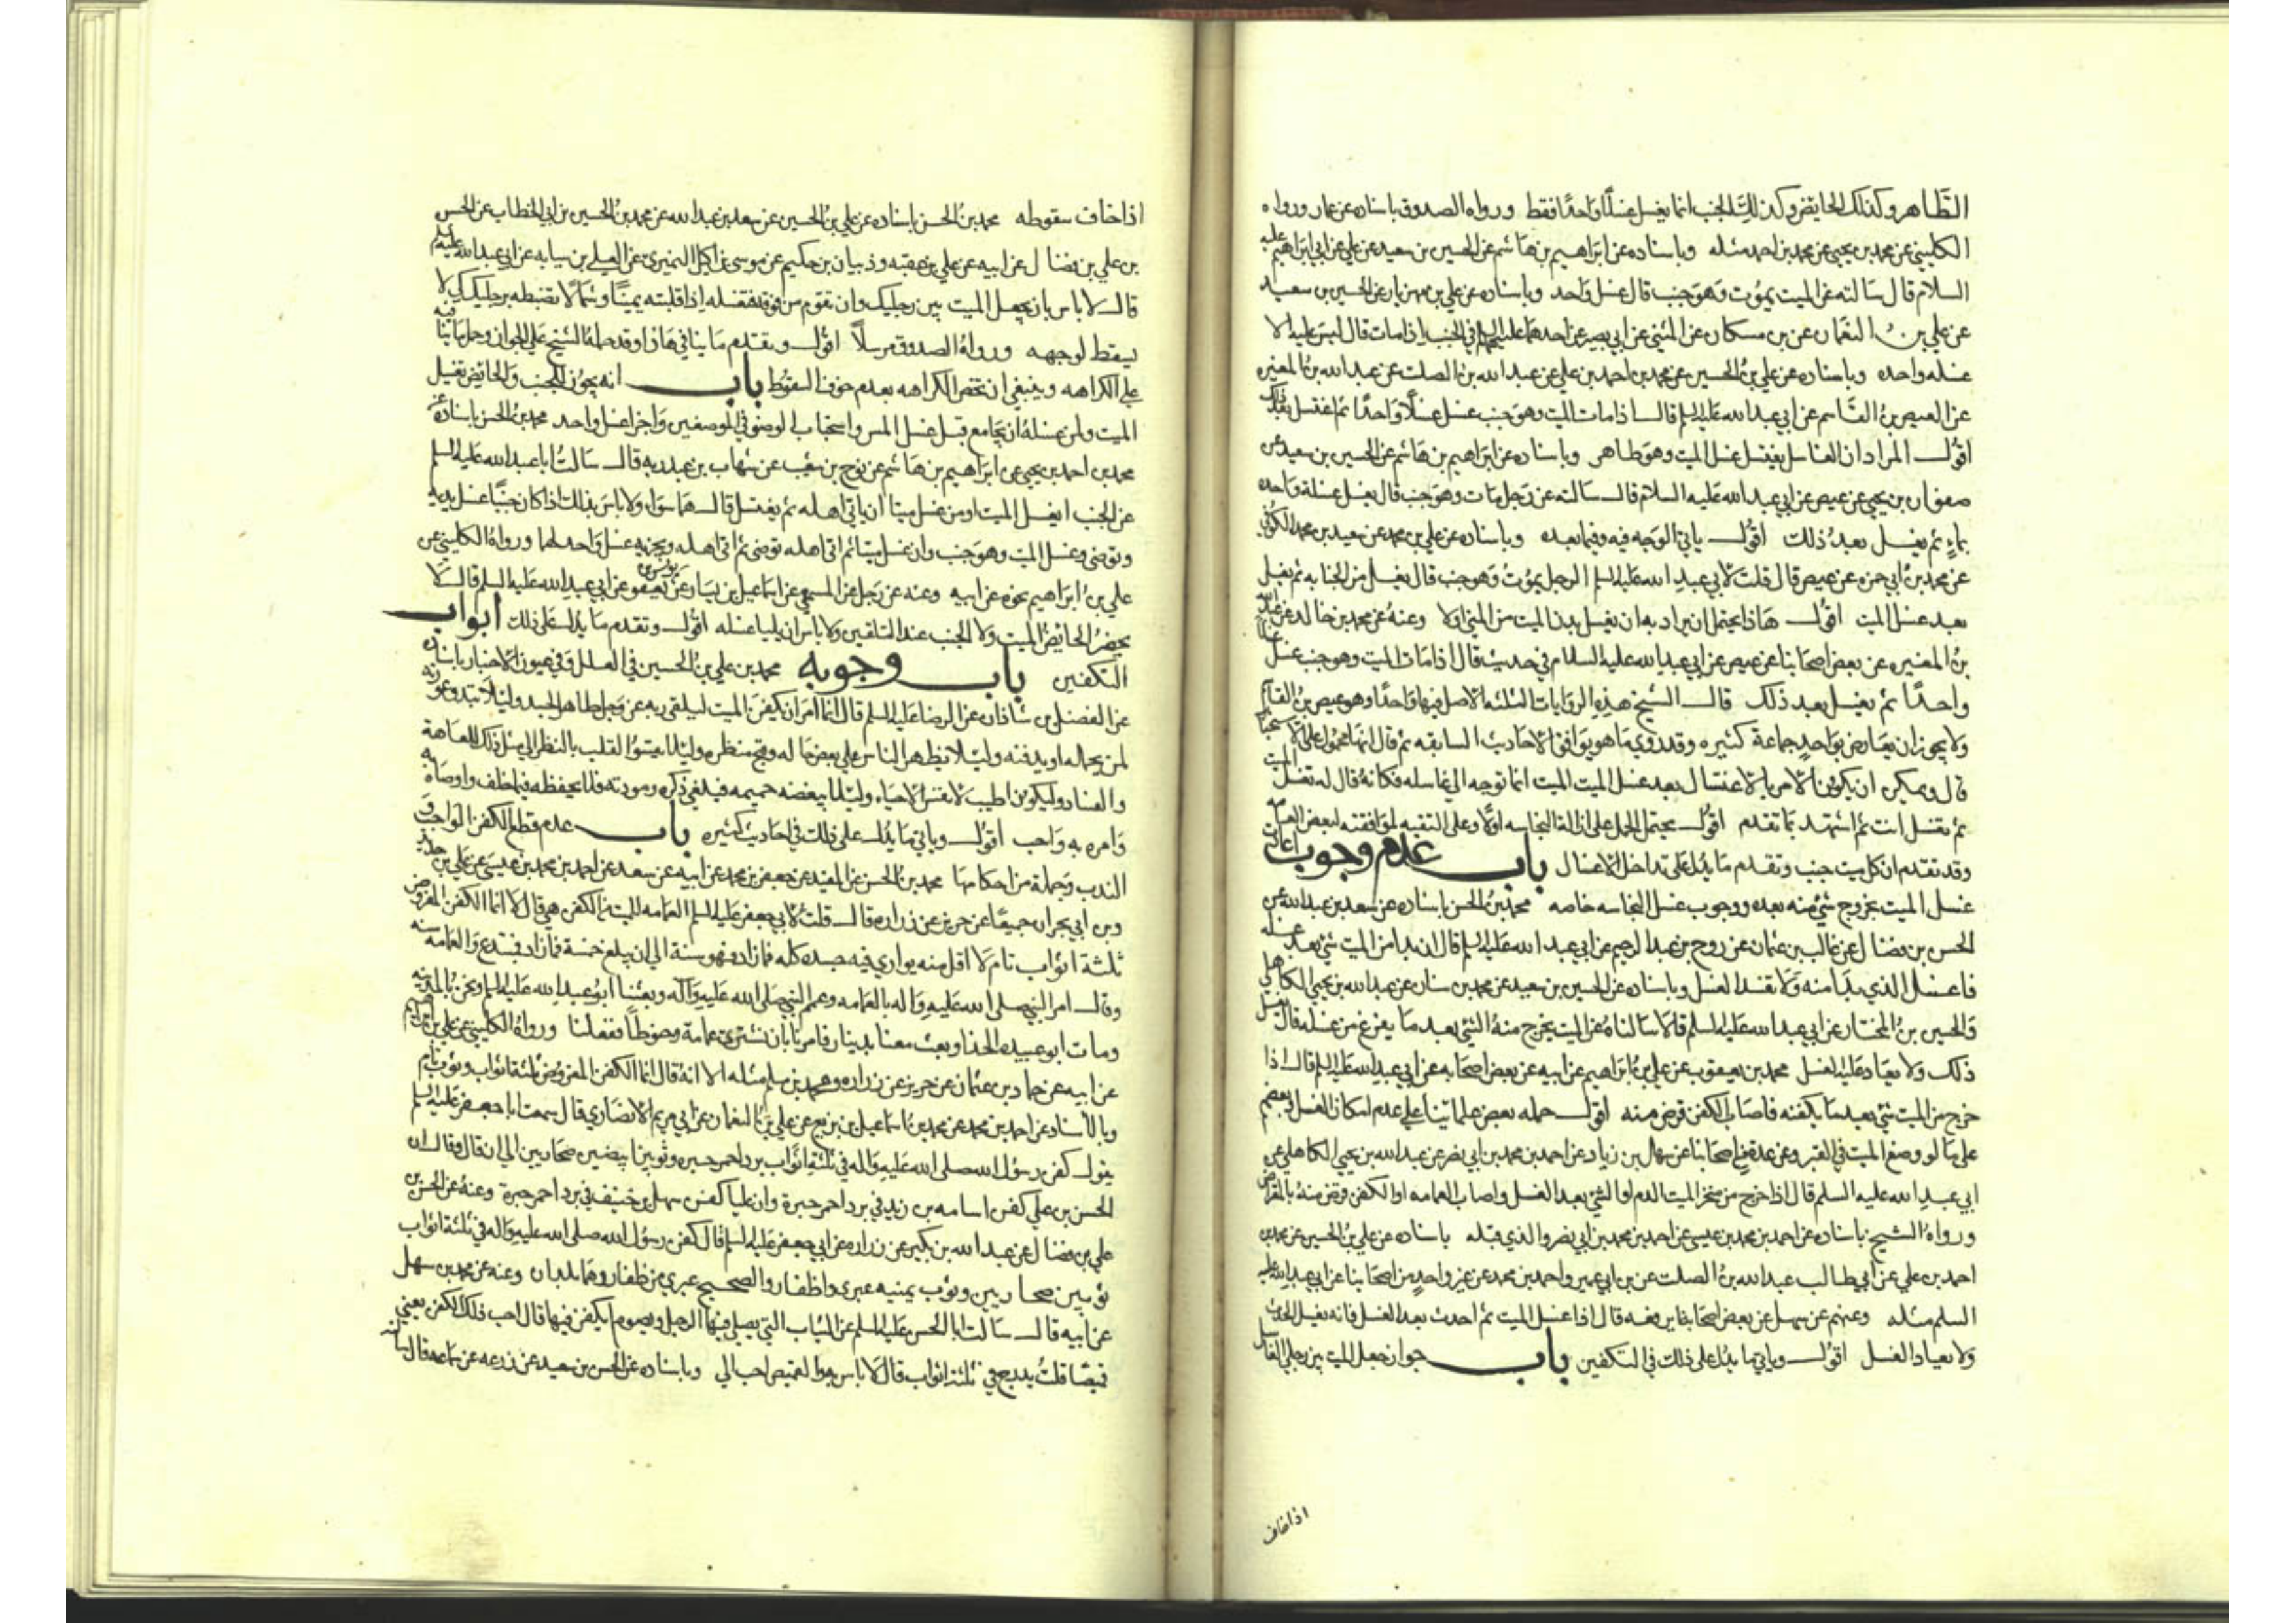 الظاهر وكذلك الحايض وكذلك الجنب انما يغسل غسلًا واحدًا فقط ورواه الصدوق باسناده عن عمار ورواه
الكليني عن محمد بن يحيى عن محمد بن احمد مثله وباسناده عن ابراهيم بن هاشم عن الحسين بن سعيد عن علي عن ابي ابراهيم عليه
السلام قال سالته عن الميت يموت وهو جنب قال غسل واحد وباسناده عن علي بن مهزيار عن الحسين بن سعيد
عن علي بن النعمان عن بن مسكان عن المثني عن ابي بصير عن احدهما عليهما في الجنب اذا مات قال ليس عليه الا
غسله واحده وباسناده عن علي بن الحسين عن محمد بن احمد بن علي عن عبد الله بن الصلت عن عبد الله بن المغيره
عن العيص بن القاسم عن ابي عبد الله عليه السلم قال اذا مات الميت وهو جنب غسل غسلًا واحدًا ثم اغتسل بعد ذلك
اقول المراد ان الغاسل يغتسل غسل الميت وهو طاهر وباسناده عن ابراهيم بن هاشم عن الحسين بن سعيد عن
صفوان بن يحيى عن عيص عن ابي عبد الله عليه السلام قال سالته عن رجل مات وهو جنب قال يغسل غسلة واحده
بماء ثم يغسل بعد ذلك اقول ياتي الوجه فيه وفيما بعده وباسناده عن علي بن محمد عن سعيد بن محمد الكوفي
عن محمد بن ابي حمزه عن عيص قال قلت لابي عبد الله عليه السلم الرجل يموت وهو جنب قال يغسل من الجنابه ثم يغسل
بعد غسل الميت اقول هاذا يحتمل ان يراد به ان يغسل بدن الميت من المني اولا وعنه عن محمد بن خالد عن عبد الله
بن المغيره عن بعض اصحابنا عن عيص عن ابي عبد الله عليه السلام في حديث قال اذا مات الميت وهو جنب غسل غسلا
واحدًا ثم يغسل بعد ذلك قال الشيخ هذه الروايات الثلثه الاصل فيها واحدًا وهو عيص بن القاسم
ولا يجوز ان يعارض بواحد جماعة كثيره وقد روي ما هو يوافق الاحاديث السابقه ثم قال انها محمول على الاستحباب
قال ويمكن ان يكون الامر بالاغتسال بعد غسل الميت الميت انما توجه الي غاسله فكانه قال له تغسل الميت
ثم تغتسل انت ثم استشهد بما تقدم اقول يحتمل الحمل على ازالة النجاسه اولًا وعلى التقيه لموافقته لبعض العامه
وقد تقدم ان كل ميت جنب وتقدم ما يدل على تداخل الاغسال باب عدم وجوب اعادة
غسل الميت بخروج شيء منه بعده ووجوب غسل النجاسه خاصه محمد بن الحسن باسناده عن سعد بن عبد الله عن
الحسن بن فضال عن غالب بن عثمان عن روح بن عبد الرحيم عن ابي عبد الله عليه السلم قال ان بدا من الميت شيء بعد غسله
فاغسل الذي بدا منه ولا تعد الغسل وباسناده عن الحسين بن سعيد عن محمد بن سنان عن عبد الله بن يحيى الكاهلي
والحسين بن المختار عن ابي عبد الله عليه السلم قالا سالناه عن الميت يخرج منه الشيء بعد ما يفرغ من غسله قال يغسل
ذلك ولا يعاد عليه الغسل محمد بن يعقوب عن علي بن ابراهيم عن ابيه عن بعض اصحابه عن ابي عبد الله عليه السلم قال اذا
خرج من الميت شيء بعد ما يكفنه فاصاب الكفن قرض منه اقول حمله بعض علمائنا علي عدم امكان الغسل وبعضهم
على ما لو وضع الميت في القبر وعن عدة من اصحابنا عن سهل بن زياد عن احمد بن محمد بن ابي نصر عن عبد الله بن يحيى الكاهلي عن
ابي عبد الله عليه السلم قال اذا خرج من منخر الميت الدم او الشيء بعد الغسل واصاب العمامه او الكفن قرض منه بالمقراض
ورواه الشيخ باسناده عن احمد بن محمد بن عيسى عن احمد بن محمد بن ابي نصر والذي قبله باسناده عن علي بن الحسين عن محمد بن
احمد بن علي عن ابي طالب عبد الله بن الصلت عن بن ابي عمير واحمد بن محمد عن غير واحد من اصحابنا عن ابي عبد الله عليه
السلم مثله وعنهم عن سهل عن بعض اصحابنا رفعه قال اذا غسل الميت ثم احدث بعد الغسل فانه يغسل الحدث
ولا يعاد الغسل اقول وياتي ما يدل على ذلك في التكفين باب جواز جعل الميت بين رجلي الغاسل
اذا خاف
اذا خاف سقوطه محمد بن الحسن باسناده عن علي بن الحسين عن سعد بن عبد الله عن محمد بن الحسين بن ابي الخطاب عن الحسن
بن علي بن فضال عن ابيه عن علي بن عقبه وذبيان بن حكيم عن موسى بن اكيل النميري عن العلا بن سيابه عن ابي عبد الله عليه
قال لا باس بان يجعل الميت بين رجليك وان تقوم من فوقه فتغسله اذا قلبته يمينًا وشمالًا تضبطه برجليك كي لا
يسقط لوجهه ورواه الصدوق مرسلًا اقول وتقدم ما ينافي هاذا وقد حمله الشيخ علي الجواز وحمل ما ينافيه
علي الكراهه وينبغي ان تخص الكراهه بعدم خوف السقوط باب انه يجوز للجنب والحايض تغسيل
الميت ولمن غسله ان يجامع قبل غسل المس واستحباب الوضو في الموضعين واجزا غسل واحد محمد بن الحسن باسناده عن
محمد بن احمد بن يحيى عن ابراهيم بن هاشم عن نوح بن شعيب عن شهاب بن عبد ربه قال سالت ابا عبد الله عليه السلم
عن الجنب ايغسل الميت او من غسل ميتا ان ياتي اهله ثم يغتسل قال هما سواء ولا باس بذلك اذا كان جنبًا غسل يديه
وتوضى وغسل الميت وهو جنب وان غسل ميتا ثم اتى اهله توضى ثم اتى اهله ويجزيه غسل واحد لهما ورواه الكليني عن
علي بن ابراهيم نحوه عن ابيه وعنه عن رجل عن المسمعي عن اسماعيل بن يسار عن يونس بن يعقوب عن ابي عبد الله عليه السلم قال لا
يحضر الحائض الميت ولا الجنب عند التلقين ولا باس ان يليا غسله اقول وتقدم ما يدل على ذلك ابواب
التكفين باب وجوبه محمد بن علي بن الحسين في العلل وفي عيون الاخبار باسناده
عن الفضل بن شاذان عن الرضا عليه السلم قال انما امر ان يكفن الميت ليلقى ربه عز وجل طاهر الجسد ولئلا تبدو عورته
لمن يحمله او يدفنه ولئلا يظهر الناس علي بعض حاله وقبح منظره ولئلا يقسو القلب بالنظر الي مثل ذلك للعاهة
والفساد وليكون اطيب لانفس الاحياء ولئلا يبغضه حميمه فيلغي ذكره ومودته فلا يحفظه فيما خلف واوصاه به
وامره به واحب اقول وياتي ما يدل على ذلك في احاديث كثيره باب عدم قطع الكفن الواجب و
الندب وجملة من احكامها محمد بن الحسن عن المفيد عن جعفر بن محمد عن ابيه عن سعد عن احمد بن محمد بن عيسى عن علي بن حديد
وبن ابي نجران جميعًا عن حريز عن زراره قال قلت لابي جعفر عليه السلم العمامه للميت من الكفن هي قال لا انما الكفن المفروض
ثلثة اثواب تام لا اقل منه يواري فيه جسده كله فما زاد فهو سنة الي ان يبلغ خمسة فما زاد فمبتدع والعمامه سنه
وقال امر النبي صلى الله عليه واله بالعمامه وعمم النبي صلى الله عليه وآله وبعثنا ابو عبد الله عليه السلم ونحن بالمدينه
ومات ابو عبيده الحذا وبعث معنا بدينار فامرنا بان نشتري عمامة وحنوطًا ففعلنا ورواه الكليني عن علي بن ابراهيم
عن ابيه عن حماد بن عثمان عن حريز عن زراره ومحمد بن مسلم مثله الا انه قال انما الكفن المفروض ثلثة اثواب وثوب تام
وبالاسناد عن احمد بن محمد عن محمد بن اسماعيل بن بزيع عن علي بن النعمان عن ابي مريم الانصاري قال سمعت ابا جعفر عليه السلم
يقول كفن رسول الله صلى الله عليه واله في ثلثة اثواب برد احمر حبره وثوبين ابيضين صحاريين الي ان قال وقال ان
الحسن بن علي كفن اسامه بن زيد في برد احمر حبرة وان عليا كفن سهل بن حنيف في برد احمر حبرة وعنه عن الحسن بن
علي بن فضال عن عبد الله بن بكير عن زراره عن ابي جعفر عليه السلم قال كفن رسول الله صلى الله عليه واله في ثلثة اثواب
ثوبين صحاريين وثوب يمنيه عبري واظفار والصحيح عبري من ظفار وهما بلدان وعنه عن محمد بن سهل
عن ابيه قال سالت ابا الحسن عليه السلم عن الثياب التي يصلي فيها الرجل ويصوم ايكفن فيها قال احب ذلك الكفن يعني
قميصًا قلت يدرج في ثلثة اثواب قال لا باس به والقميص احب الي وباسناده عن الحسن بن سعيد عن زرعه عن سماعه قال سالته